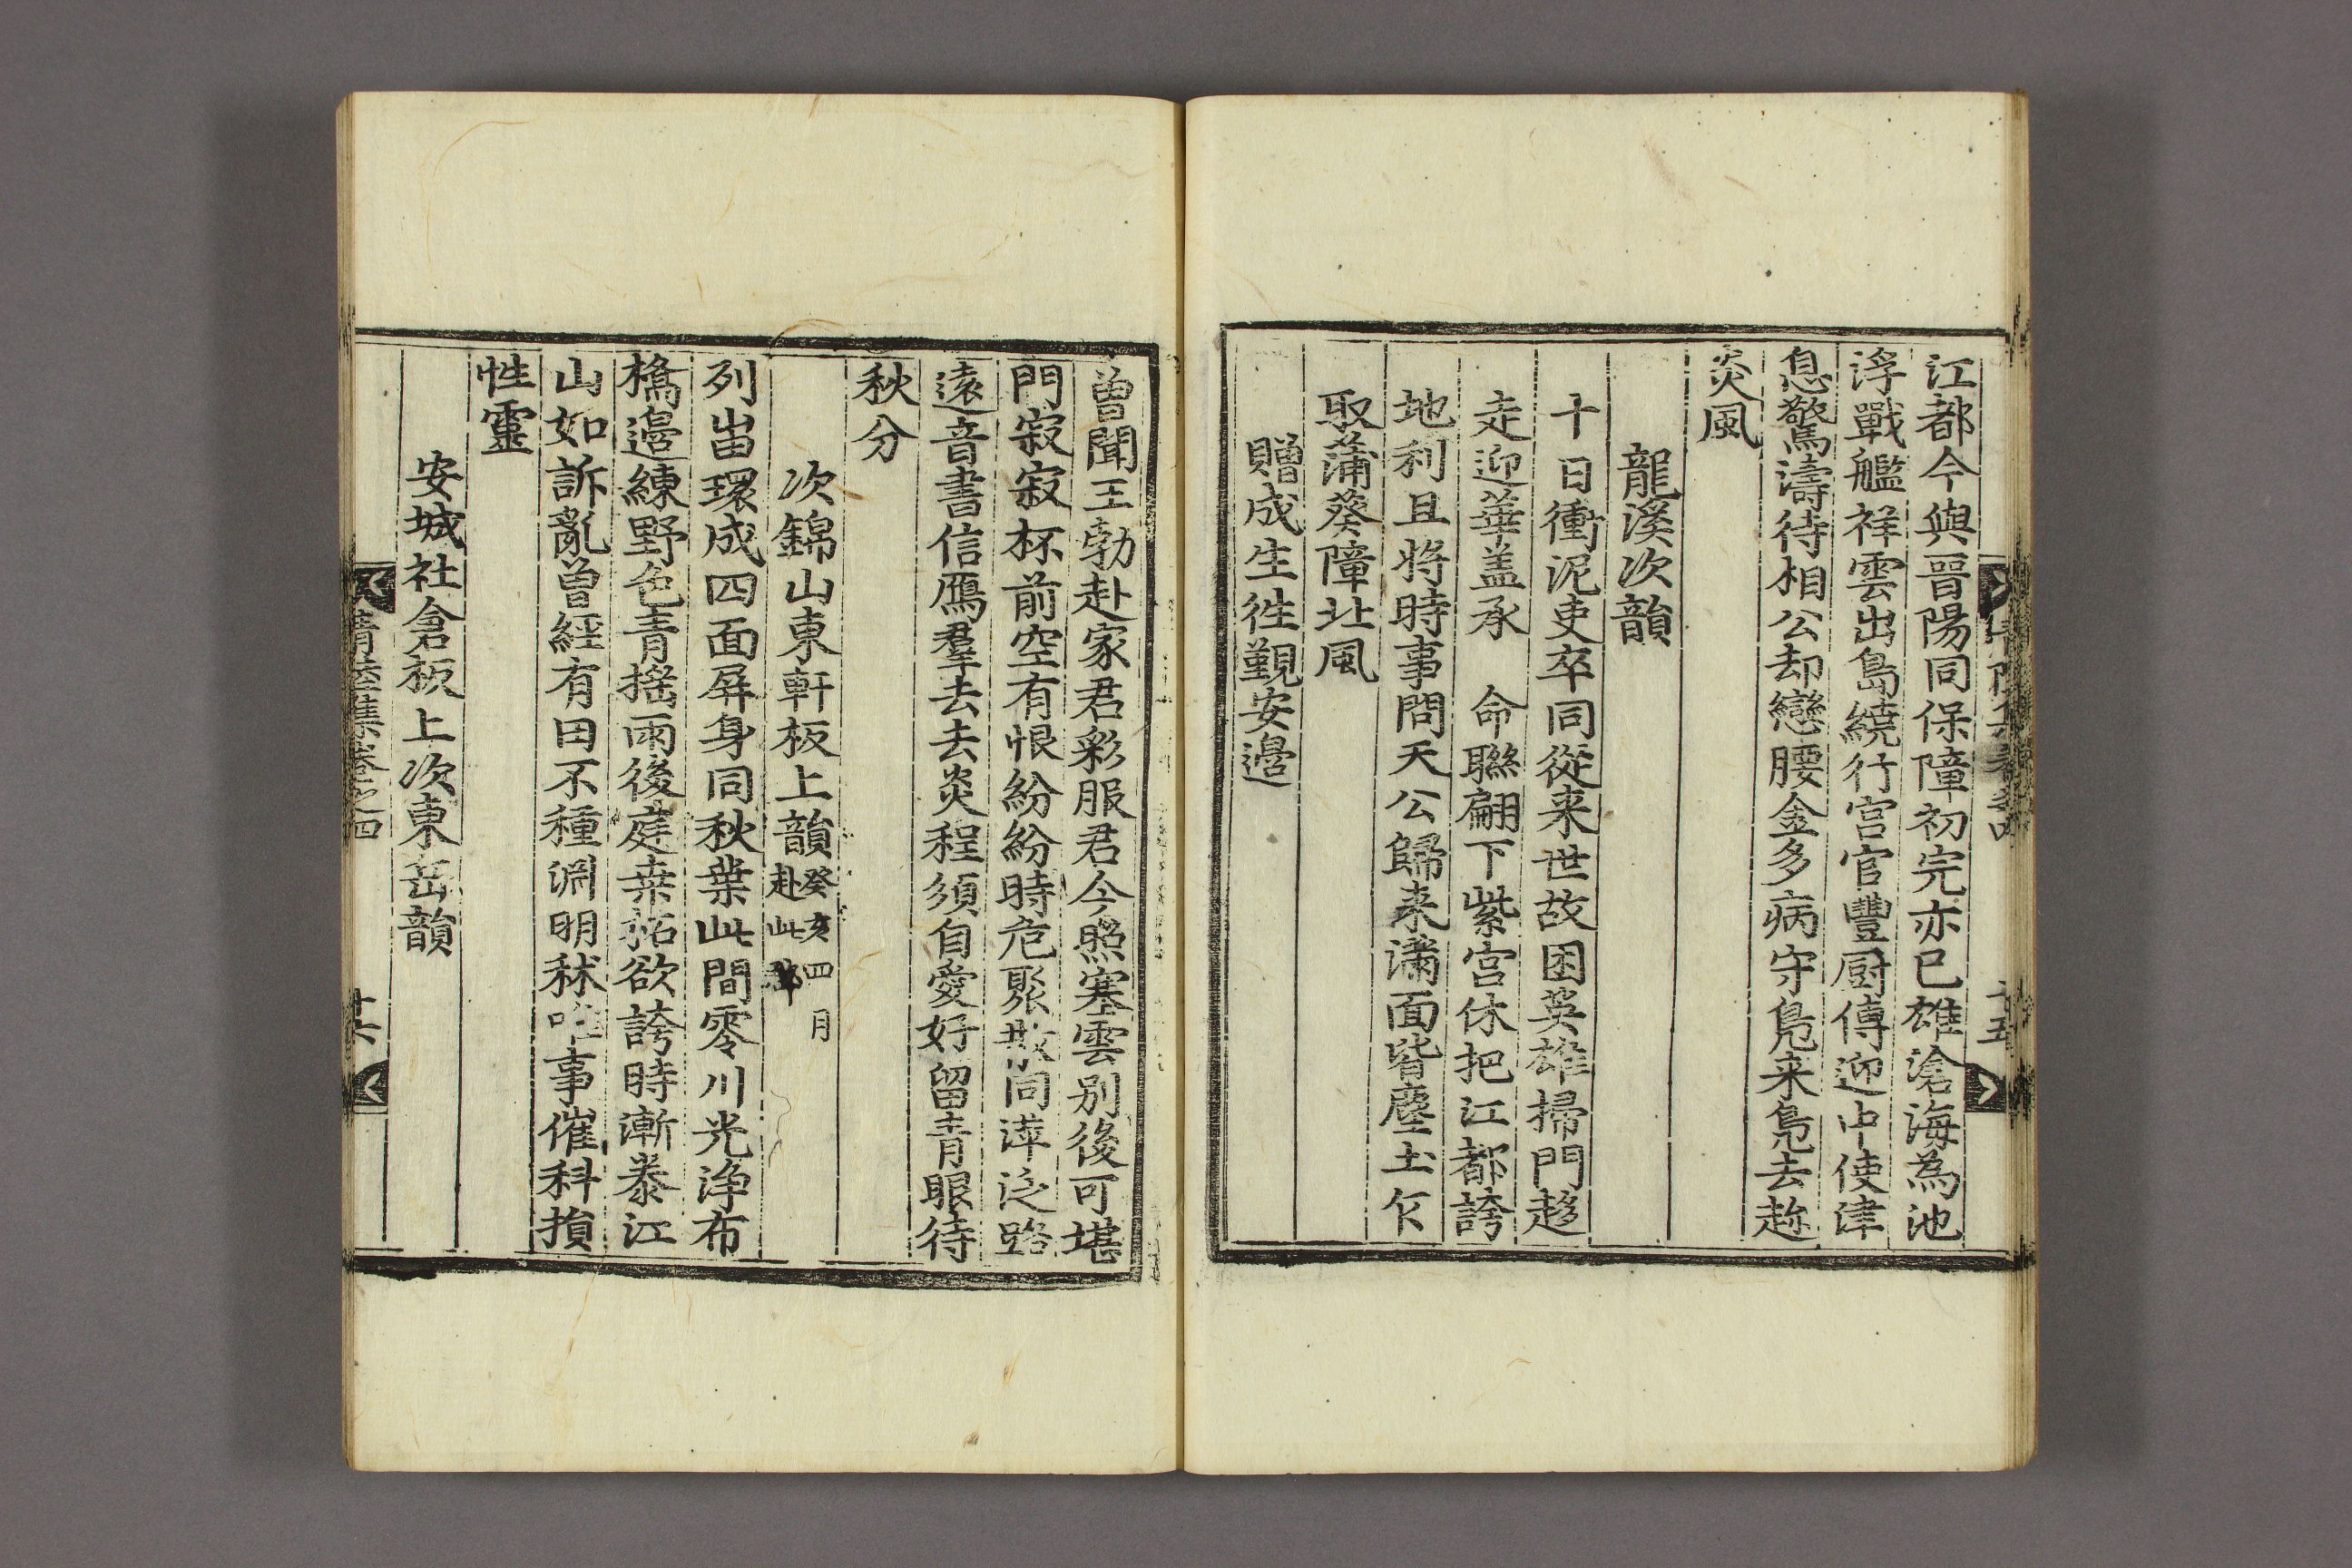 江都今與晉陽同保障初完亦已雄滄海為池
浮戰艦祥雲出島繞行宮官豐厨傳迎中使津
息驚濤待相公却戀腰金多病守鳧来鳧去趂
炎風
龍溪次韻
十日衝泥吏卒同從来世故困英雄掃門趍
走迎華盖承 命聯翩下紫宮休把江都誇
地利且將時事問天公歸来滿面皆塵土乍
取蒲葵障北風
贈成生徃覲安邊
曽聞王勃赴家君彩服君今照塞雲別後可堪
門寂寂杯前空有恨紛紛時危聚散同萍泛路
遠音書信鴈羣去去炎程須自愛好留青眼待
秋分
次錦山東軒板上韻癸亥四月赴此郡
列峀環成四面屏身同秋葉此間零川光淨布
橋邉練野色青揺雨後庭桒柘欲誇時漸泰江
山如訴亂曽經有田不種淵明秫唯事催科損
性靈
安城社倉板上次東岳韻
集卷之四
十六